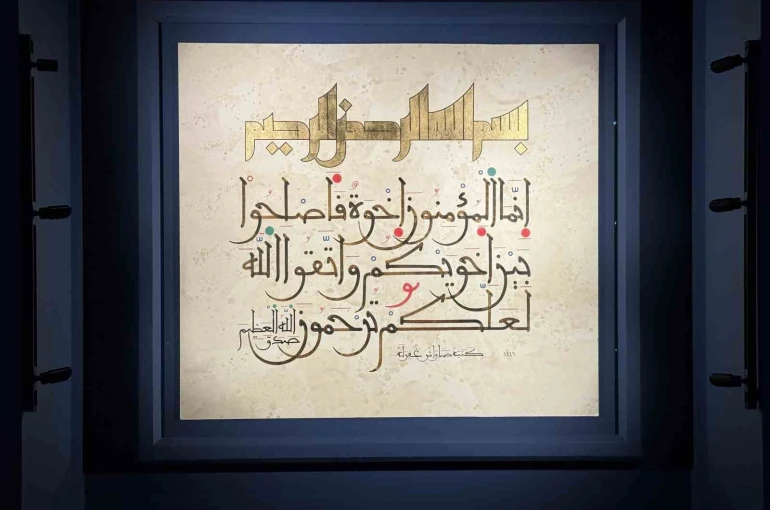 بسم الله الرحمن الرحيم
انّما المؤمنون اخوة فاصلحوا
بين اخويكم واتّقوا اللّه
لعلّكم ترحمون صدق اللّه العظيم
كتبه صاواش غفرله ١٤٤٦